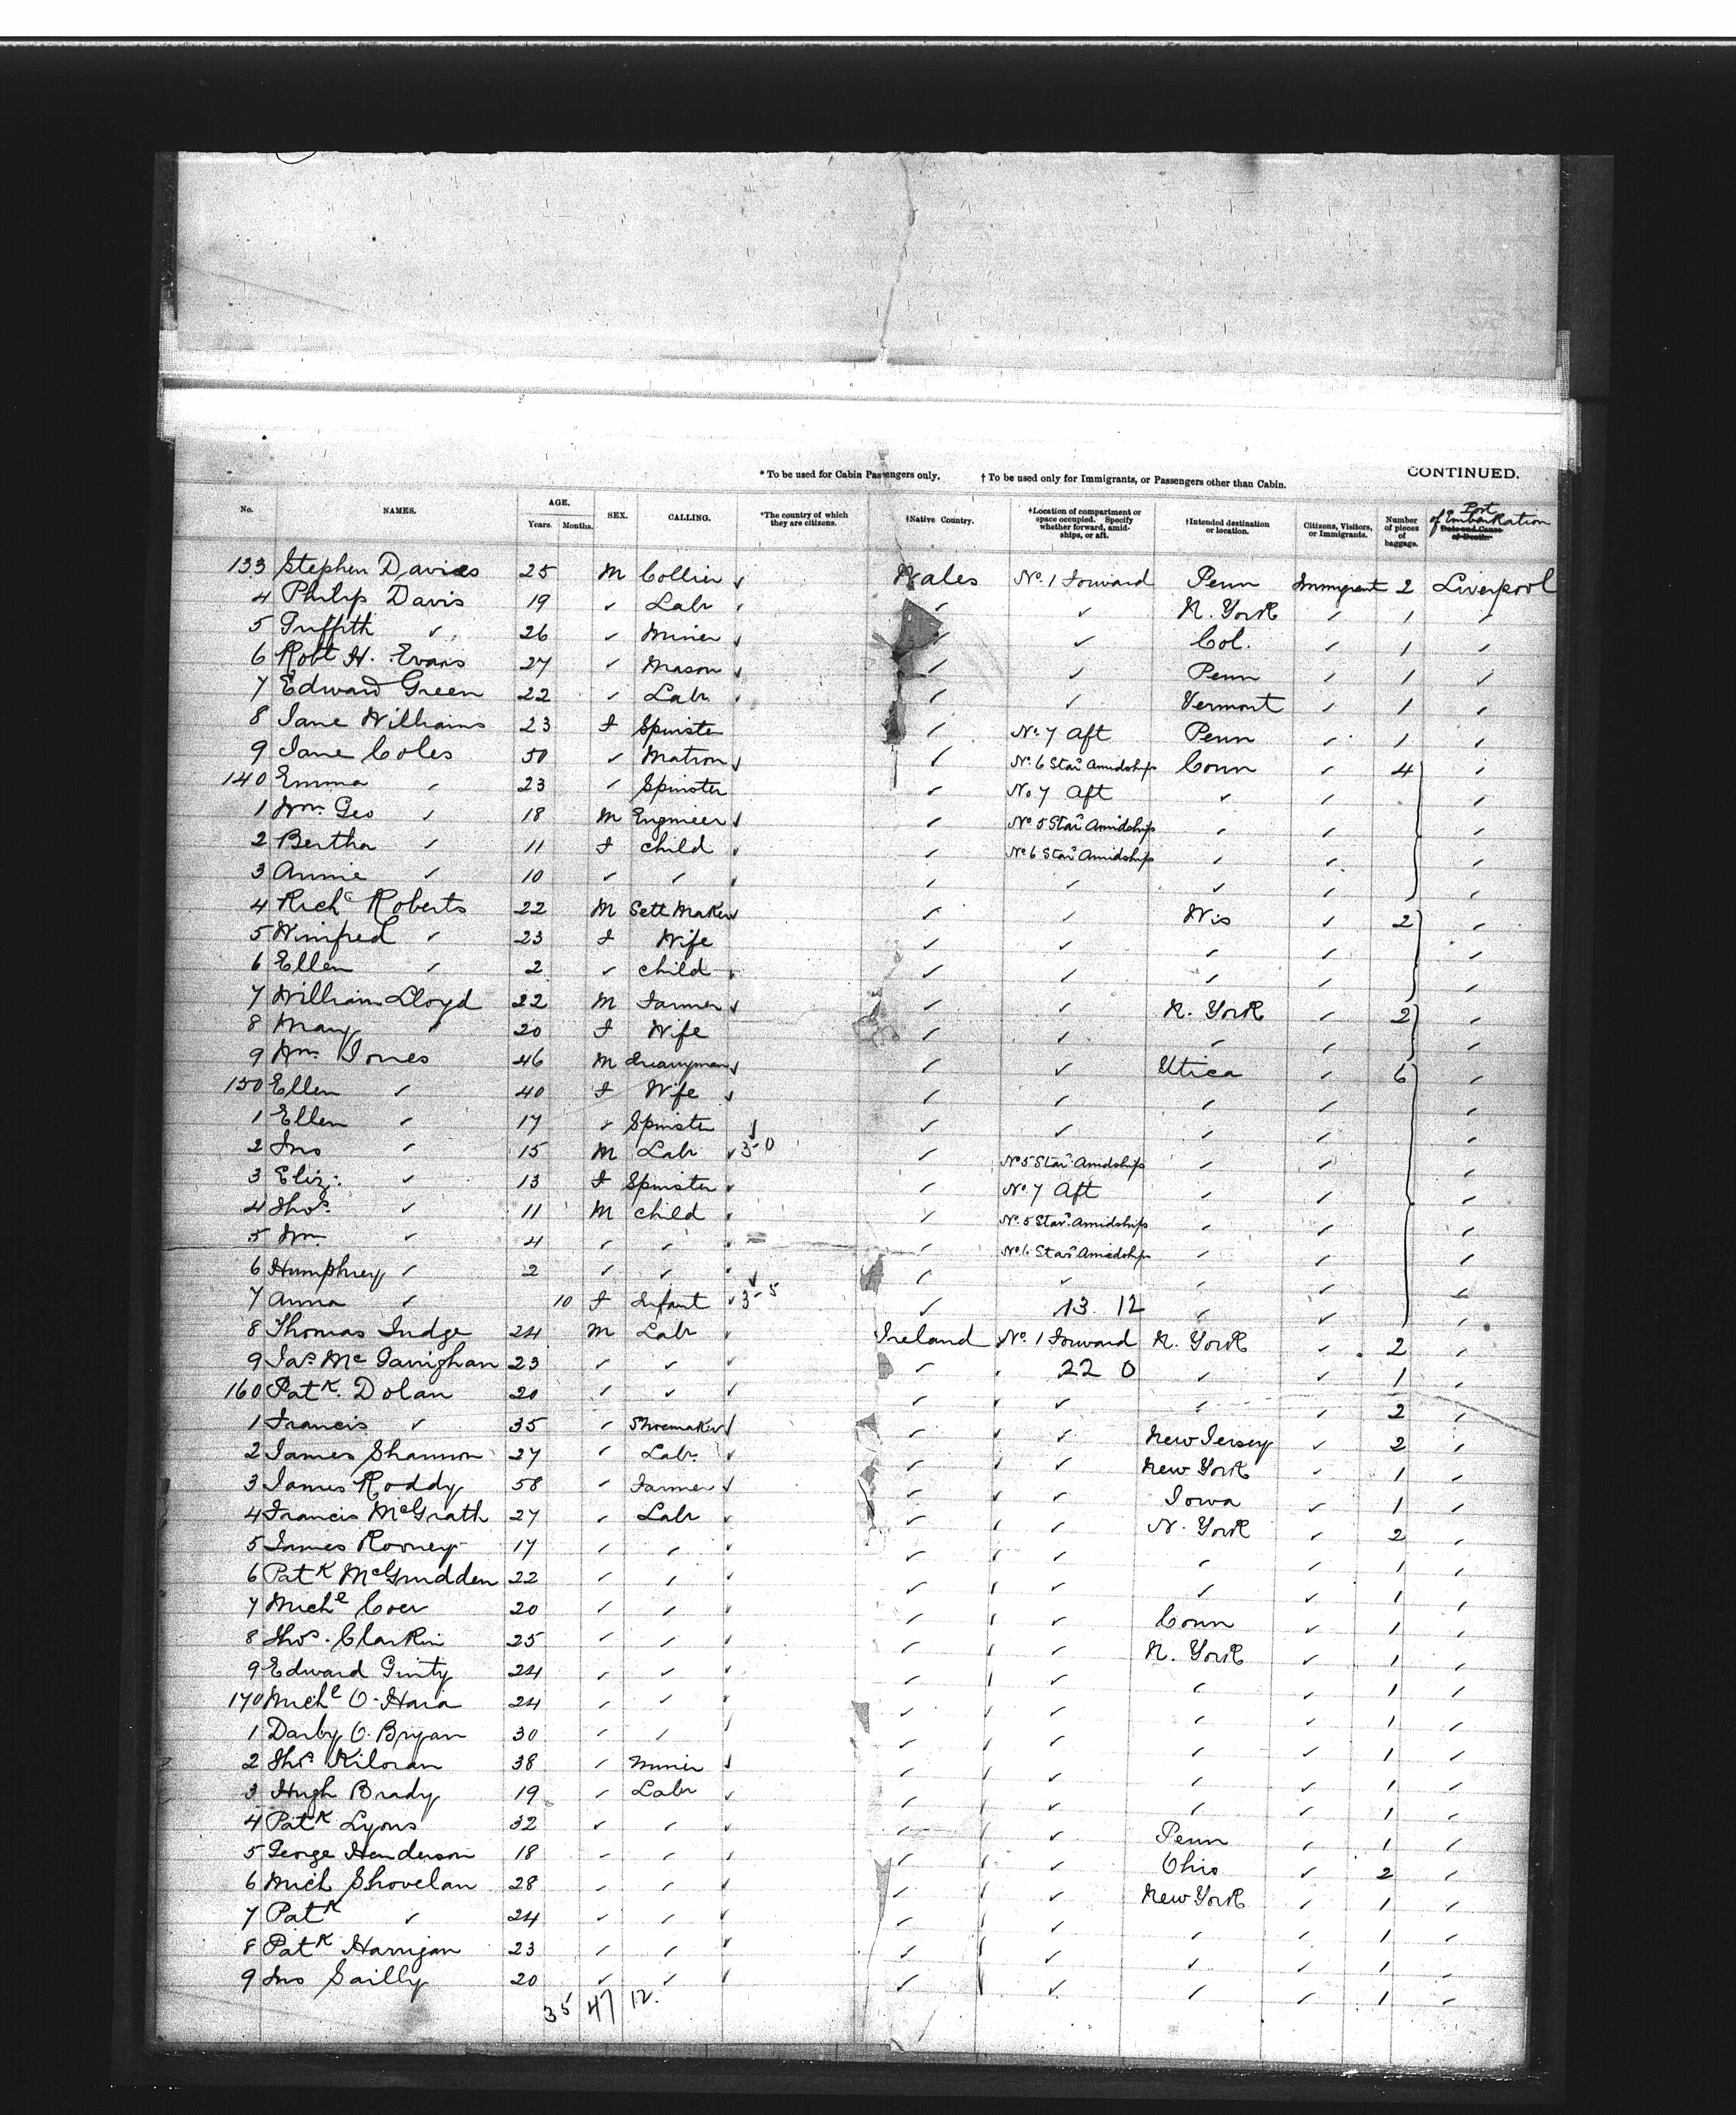 * To be used for Cabin Passengers only. † To be used only for Immigrants, or Passengers other than Cabin. CONTINUED.
No. NAMES. AGE. Years. Months. SEX. CALLING. *The country of which they are citizens. †Native Country. †Location of compartment or space occupied. Specify whether forward, amidships, or aft. †Intended destination or location. Citizens, Visitors, or Immigrants. Number of pieces of baggage. Port of Embarkation Date and Cause of Death.
133 Stephen Davies 25 M Collier ✓ Wales No. 1 Forward Penn Immigrant 2 Liverpool
4 Philip Davis 19 ✓ Labr ✓ ✓ ✓ N. York ✓ 1 ✓
5 Griffith ✓ 26 ✓ Miner ✓ ✓ ✓ Col. ✓ 1 ✓
6 Robt H. Evans 27 ✓ Mason ✓ ✓ ✓ Penn ✓ 1 ✓
7 Edward Green 22 ✓ Labr ✓ ✓ ✓ Vermont ✓ 1 ✓
8 Jane Williams 23 F Spinster ✓ No. 7 Aft Penn ✓ 1 ✓
9 Jane Coles 50 ✓ Matron ✓ ✓ No. 6 Starn Amidships Conn ✓ 4 ✓
140 Emma ✓ 23 ✓ Spinster ✓ No 7 Aft ✓ ✓ ✓
1 Wm. Geo ✓ 18 M Engineer ✓ ✓ No. 5 Starn Amidships ✓ ✓ ✓
2 Bertha ✓ 11 F Child ✓ ✓ No. 6 Starn Amidships ✓ ✓ ✓
3 Annie ✓ 10 ✓ ✓ ✓ ✓ ✓ ✓ ✓ ✓
4 Richd Roberts 22 M Sett Maker ✓ ✓ ✓ Wis ✓ 2 ✓
5 Winifred ✓ 23 F Wife ✓ ✓ ✓ ✓ ✓
6 Ellen ✓ 2 ✓ Child ✓ ✓ ✓ ✓ ✓ ✓
7 William Lloyd 22 M Farmer ✓ ✓ ✓ N. York ✓ 2 ✓
8 Mary ✓ 20 F Wife ✓ ✓ ✓ ✓ ✓
9 Wm. Jones 46 M ✓ ✓ ✓ Utica ✓ 6 ✓
150 Ellen ✓ 40 F Wife ✓ ✓ ✓ ✓ ✓ ✓
1 Ellen ✓ 17 ✓ Spinster ✓ ✓ ✓ ✓ ✓ ✓
2 Jno ✓ 15 M Labr ✓ 3-0 ✓ No 5 Starn Amidships ✓ ✓ ✓
3 Eliz: ✓ 13 F Spinster ✓ ✓ No. 7 Aft ✓ ✓ ✓
4 Thos. ✓ 11 M Child ✓ ✓ No. 5 Starn Amidships ✓ ✓ ✓
5 Wm. ✓ 4 ✓ ✓ ✓ ✓ No. 6 Starn Amidships ✓ ✓ ✓
6 Humphrey ✓ 2 ✓ ✓ ✓ ✓ ✓ ✓ ✓ ✓
7 Anna ✓ 10 F Infant ✓ 3-5 ✓ 13. 12 ✓ ✓ ✓
8 Thomas Judge 24 M Labr ✓ Ireland No. 1 Forward N. York ✓ 2 ✓
9 Jas. Mc Garrighan 23 ✓ ✓ ✓ ✓ 22 0 ✓ ✓ 1 ✓
160 Patk. Dolan 20 ✓ ✓ ✓ ✓ ✓ ✓ ✓ 2 ✓
1 Francis ✓ 35 ✓ Shoemaker ✓ ✓ ✓ New Jersey ✓ 2 ✓
2 James Shannon 27 ✓ Labr. ✓ ✓ ✓ New York ✓ 1 ✓
3 James Roddy 58 ✓ Farmer ✓ ✓ ✓ Iowa ✓ 1 ✓
4 Francis McGrath 27 ✓ Labr ✓ ✓ ✓ N. York ✓ 2 ✓
5 James Rooney 17 ✓ ✓ ✓ ✓ ✓ ✓ ✓ 1 ✓
6 Patk McGrudden 22 ✓ ✓ ✓ ✓ ✓ ✓ ✓ 1 ✓
7 Michl Coer 20 ✓ ✓ ✓ ✓ ✓ Conn ✓ 1 ✓
8 Thos. Clarkin 25 ✓ ✓ ✓ ✓ ✓ N. York ✓ 1 ✓
9 Edward Ginty 24 ✓ ✓ ✓ ✓ ✓ ✓ ✓ 1 ✓
170 Michl O'Hara 24 ✓ ✓ ✓ ✓ ✓ ✓ ✓ 1 ✓
1 Darby O. Bryan 30 ✓ ✓ ✓ ✓ ✓ ✓ ✓ 1 ✓
2 Thos Kiloran 38 ✓ Miner ✓ ✓ ✓ ✓ ✓ 1 ✓
3 Hugh Brady 19 ✓ Labr ✓ ✓ ✓ ✓ ✓ 1 ✓
4 Patk Lyons 32 ✓ ✓ ✓ ✓ ✓ Penn ✓ 1 ✓
5 George Henderson 18 ✓ ✓ ✓ ✓ ✓ Ohio ✓ 2 ✓
6 Mich Shovelan 28 ✓ ✓ ✓ ✓ ✓ New York ✓ 1 ✓
7 Patk ✓ 24 ✓ ✓ ✓ ✓ ✓ ✓ ✓ 1 ✓
8 Patk Harrigan 23 ✓ ✓ ✓ ✓ ✓ ✓ ✓ 1 ✓
9 Jno 20 ✓ ✓ ✓ ✓ ✓ ✓ ✓ 1 ✓
35 47 12.